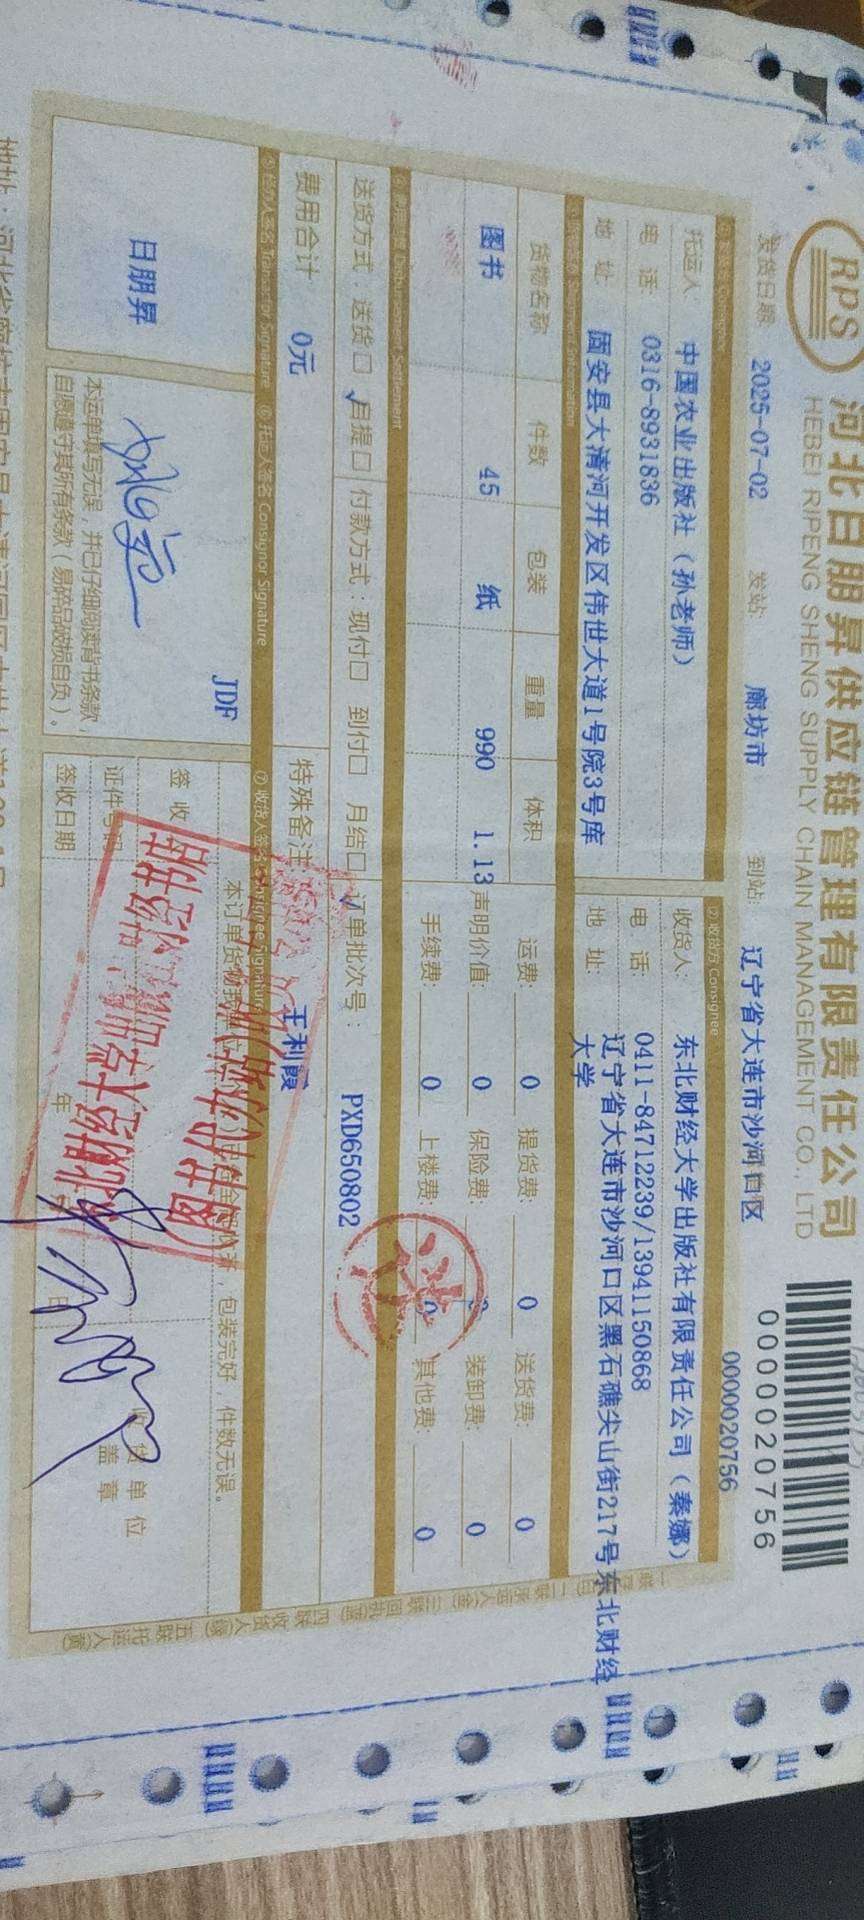 RPS
河北日朋昇供应链管理有限责任公司
HEBEI RIPENG SHENG SUPPLY CHAIN MANAGEMENT CO., LTD
0000020756
0000020756
发货日期: 2025-07-02 发站: 廊坊市 到站: 辽宁省大连市沙河口区
②收货方 Consignee
托运人: 中国农业出版社（孙老师） 收货人: 东北财经大学出版社有限责任公司（秦娜）
电 话: 0316-8931836 电 话: 0411-84712239/13941150868
地 址: 固安县大清河开发区伟世大道1号院3号库 地 址: 辽宁省大连市沙河口区黑石礁尖山街217号东北财经
大学
货物名称 件数 包装 重量 体积 运费: 0 提货费: 0 送货费: 0
图书 45 纸 990 1.13 声明价值: 0 保险费: 装卸费: 0
手续费: 0 上楼费: 0 其他费: 0
送货方式: 送货□ 自提□ 付款方式: 现付□ 到付□ 月结□ 订单批次号: PXD650802
费用合计 0元 特殊备注: 王利霞
⑥托运人签名 Consignor Signature ⑦收货人签名 Consignee Signature
日朋昇
JDF
本运单填写无误，并已仔细阅读背书条款，
自愿遵守其所有条款（易碎品破损自负）。
包装完好，件数无误。
签收
证件号码
签收日期 年 日
收货单位
盖章